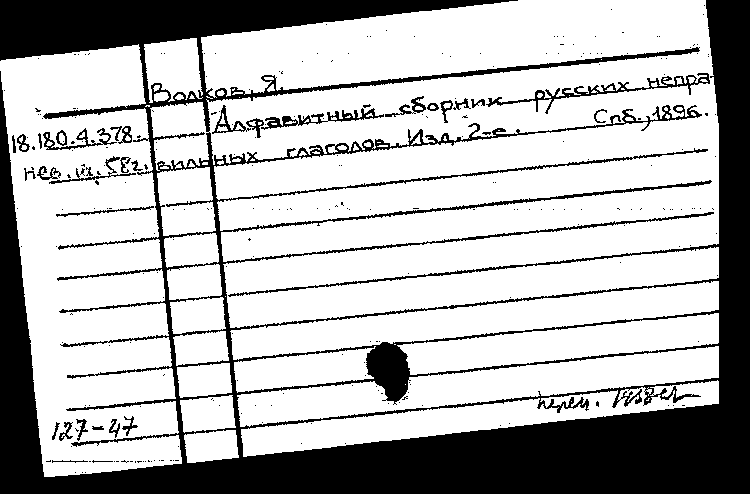 Волков, Я.
18.180.4.378. Алфавитный сборник русских непра
вильных глаголов. Изд. 2-е. Спб., 1896.
127-47